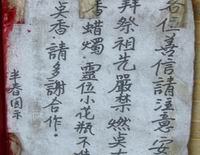 各位善信請注意安
拜祭祖先嚴禁燃點大
香蠟燭靈位小花瓶不准
香請多謝合作